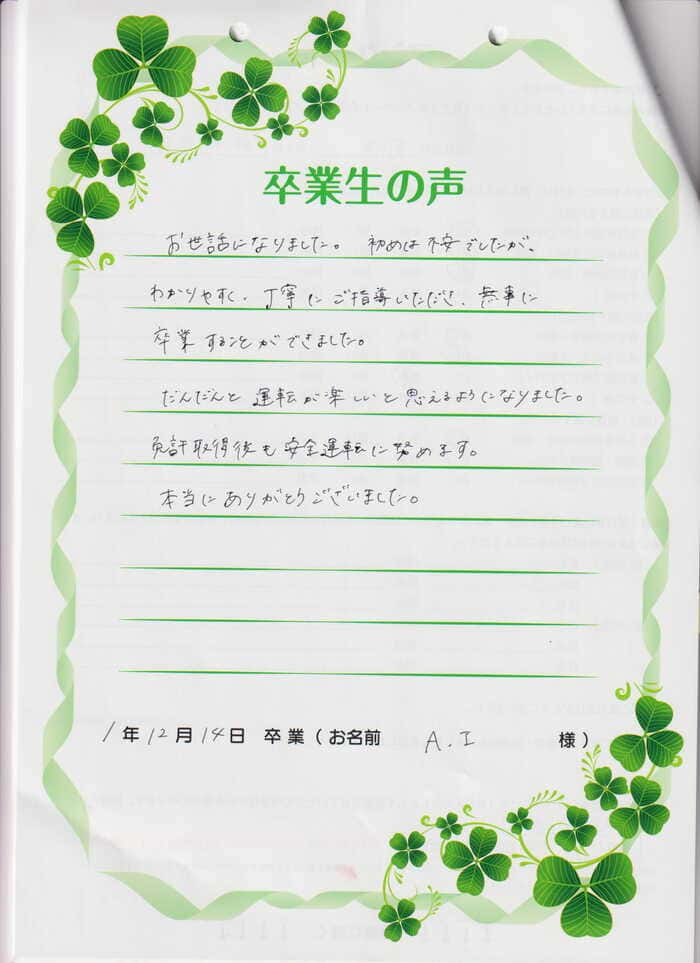 卒業生の声
お世話になりました。 初めは不安でしたが、
わかりやすく、丁寧にご指導いただき、無事に
卒業することができました。
だんだんと運転が楽しいと思えるようになりました。
免許取得後も安全運転に努めます。
本当にありがとうございました。
1年12月14日 卒業(お名前 A.I 様)